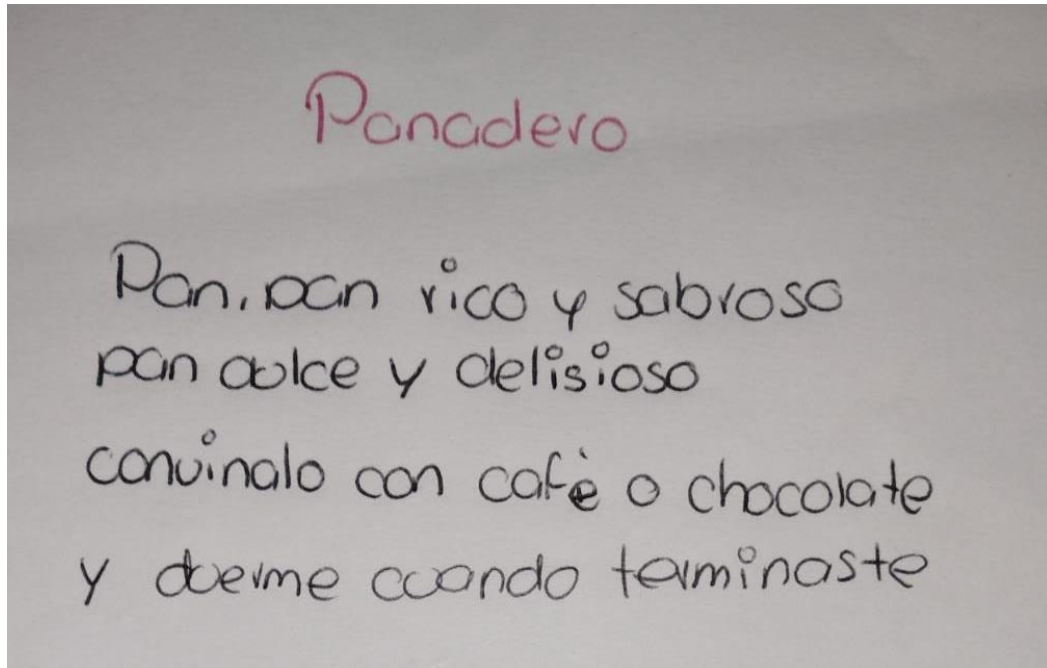 Panadero
Pan, pan rico y sabroso
pan dulce y delisioso
convinalo con cafè o chocolate
y duerme cuando terminaste